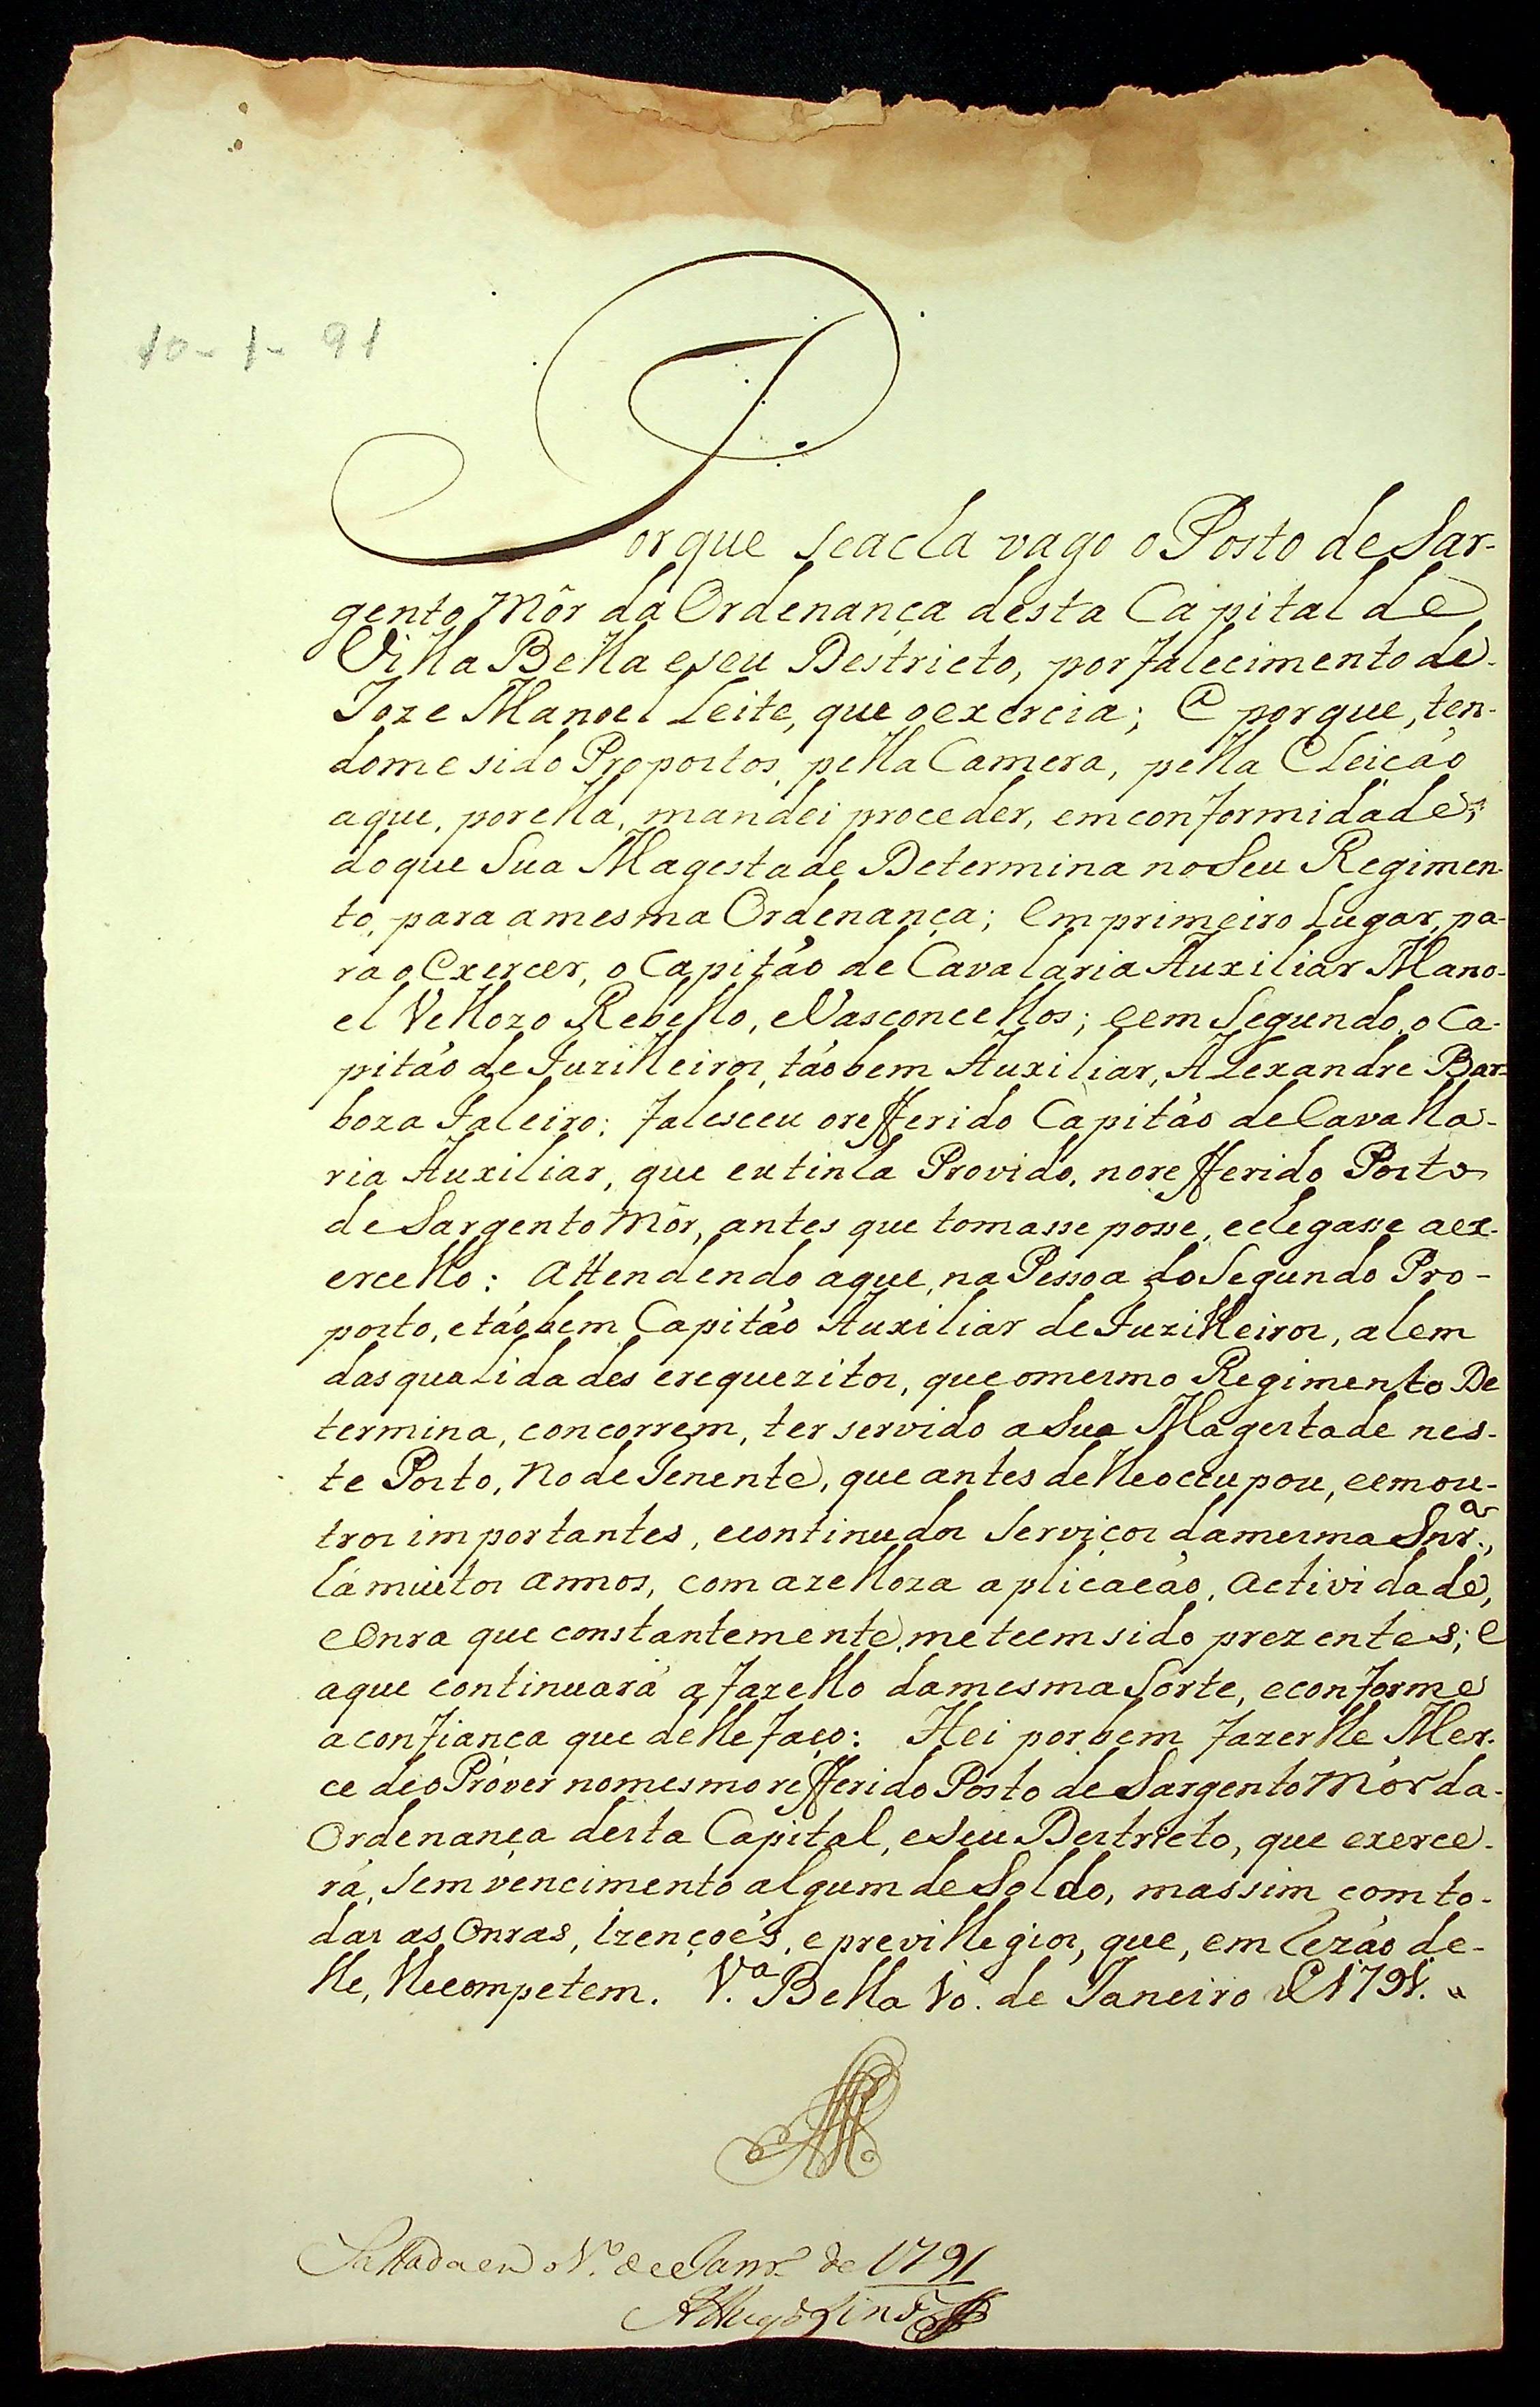 10-1-91
Porque seacha vago o Posto de Sar-
gento Môr da Ordenança desta Capital de
Villa Bella eseu Destricto, por falecimento de
Joze Manoel Leite, que oexercia; E porque, ten-
dome sido Propostos, pella Camera, pella Eleição
aque, porella, mandei proceder, emconformidade,
doque Sua Magestade Determina noSeu Regimen-
to, para amesma Ordenança; Em primeiro Lugar, pa-
ra o Exercer, o Capitão de Cavalaria Auxiliar Mano-
el Vellozo Rebello, eVasconcellos; eem Segundo, o Ca-
pitão de Fuzilleiros, tãobem Auxiliar, Alexandre Bar-
boza Faleiro: falesceu orefferido Capitão de Cavalla-
ria Auxiliar, que eutinha Provido, norefferido Posto
de Sargento Môr, antes que tomasse posse, echegasse aex-
ercello: Attendendo aque, na Pessoa do Segundo Pro-
posto, etãobem Capitão Auxiliar de Fuzilleiros, alem
das qualidades erequezitos, que omesmo Regimento De
termina, concorrem, ter servido a Sua Magestade nes-
te Posto, No de Tenente, que antes delleoccupou, eemou-
tros importantes, econtinuados Serviços damesma Snr.ª,
há muitos annos, com azelloza aplicação, Actividade,
eOnra que constantemente, meteem sido prezentes; e
aque continuará a fazello damesma Sorte, econforme
aconfiança que delle faço: Hei porbem fazerlhe Mer-
ce deo Prover nomesmo refferido Posto de Sargento Mór da
Ordenança desta Capital, eSeu Destricto, que exerce-
rá, Sem vencimento algum de Soldo, mas sim com to-
das as Onras, Izençoẽs, e previllegios, que, em rezão de-
lle, lhecompetem. V.ª Bella 10. de Janeiro de 1791.
Sellada em 10 de Janr.º de 1791